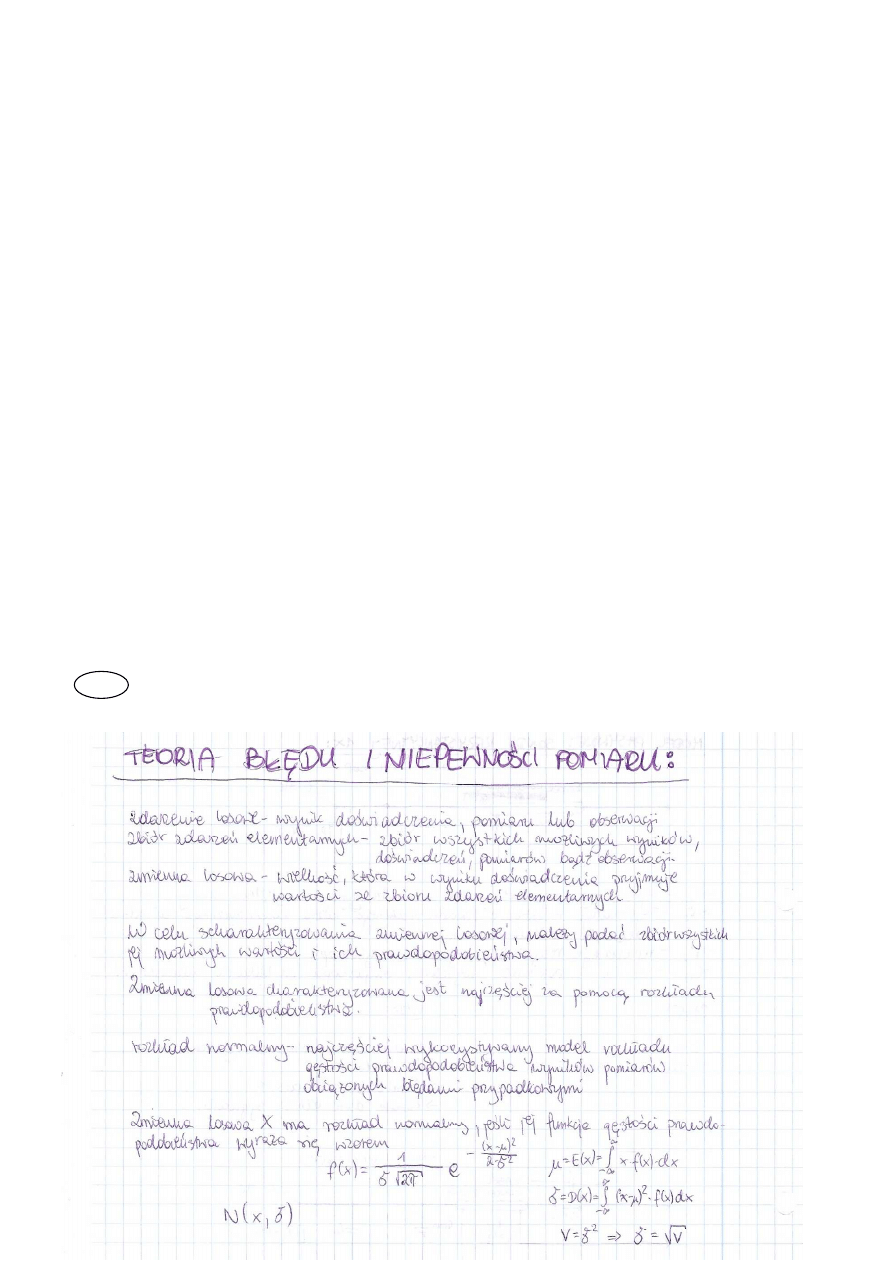 TEORIA BŁĘDU I NIEPEWNOŚCI POMIARU:
zdarzenie losowe - wynik doświadczenia, pomiaru lub obserwacji
zbiór zdarzeń elementarnych - zbiór wszystkich możliwych wyników,
doświadczeń, pomiarów bądź obserwacji
zmienna losowa - wielkość, która w wyniku doświadczenia przyjmuje
wartości ze zbioru zdarzeń elementarnych
W celu scharakteryzowania zmiennej losowej, należy podać zbiór wszystkich
jej możliwych wartości i ich prawdopodobieństwa.
Zmienna losowa charakteryzowana jest najczęściej za pomocą rozkładu
prawdopodobieństwa.
rozkład normalny - najczęściej wykorzystywany model rozkładu
gęstości prawdopodobieństwa wyników pomiarów
obciążonych błędami przypadkowymi
Zmienna losowa X ma rozkład normalny, jeśli jej funkcja gęstości prawdo-
podobieństwa wyraża się wzorem
f(x) = 1 / (σ √2π) e^(-(x-μ)² / 2·σ²)
μ = E(x) = ∫_{-∞}^{∞} x·f(x)·dx
σ = D(x) = ∫_{-∞}^{∞} (x-μ)²·f(x)dx
N(x, σ)
V = σ² ⇒ σ = √V